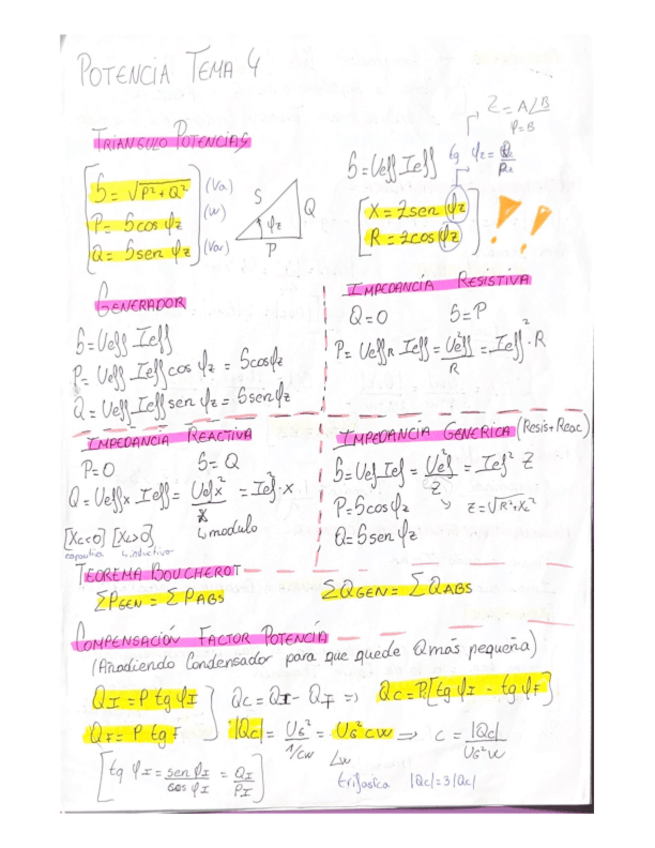 POTENCIA TEMA 4
Z = A∠B
φ = B
TRIANGULO POTENCIAS
S = √P²+Q² (Va)
P = S cos φz (W)
Q = S sen φz (Var)
S
Q
φz
P
S = Ueff Ieff
tg φz =
X = Z sen φz
R = Z cos φz
!!
GENERADOR
S = Ueff Ieff
P = Ueff Ieff cos φz = S cos φz
Q = Ueff Ieff sen φz = S sen φz
IMPEDANCÍA RESISTIVA
Q = 0 S = P
P = UeffR Ieff = Ueff²/R = Ieff² · R
IMPEDANCIA REACTIVA
P = 0 S = Q
Q = Ueffx Ieff = Uefx²/X = Ief² · x
↳ modulo
[Xc<0] [XL>0]
capacitiva ↳ inductivo
IMPEDANCIA GENERICA (Resis + Reac)
S = Uef Ief = Uef²/Z = Ief² Z
P = S cos φz ↳ Z = √R²+X²
Q = S sen φz
TEOREMA BOUCHEROT
ΣPGEN = ΣPABS ΣQGEN = ΣQABS
COMPENSACIÓN FACTOR POTENCÍA
(Añadiendo Condensador para que quede Q más pequeña)
QI = P tg φI Qc = QI - QF => Qc = P[tg φI - tg φF]
QF = P tg F |Qc| = UG²/1/cw = UG² cw => C = |Qc|/UG² w
[tg φI = sen φI/cos φI = QI/PI]
trifasica |Qc| = 3|Qc|